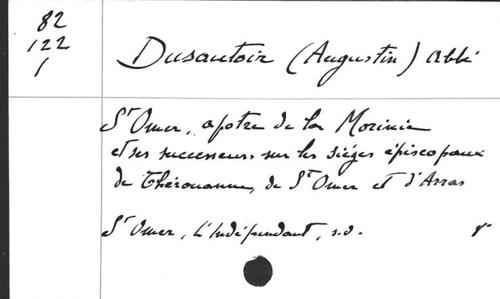 82
122
1
Dusautoir (Augustin) abbé
St Omer, apotre de la Morinie
et ses successeurs sur les sièges épiscopaux
de Thérouanne, de St Omer et d'Arras
St Omer, L'Indépendant, s.d. 8°